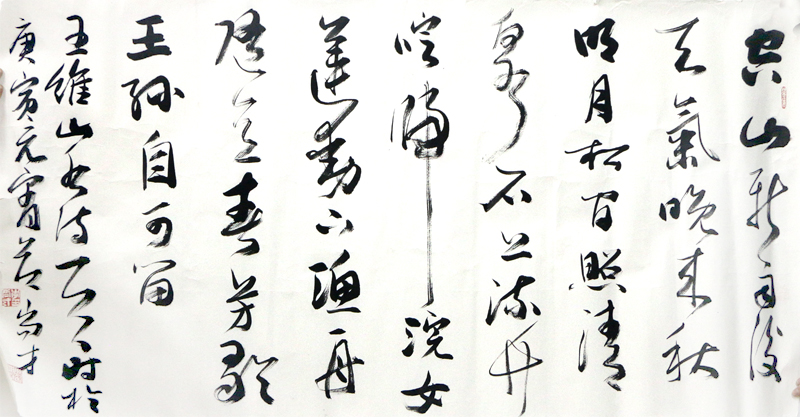 空山新雨後
天氣晚來秋
明月松间照清
泉石上流竹
喧歸浣女
蓮動下漁舟
随意春芳歇
王孫自可留
王維山居诗一首时於
庚寅元宵